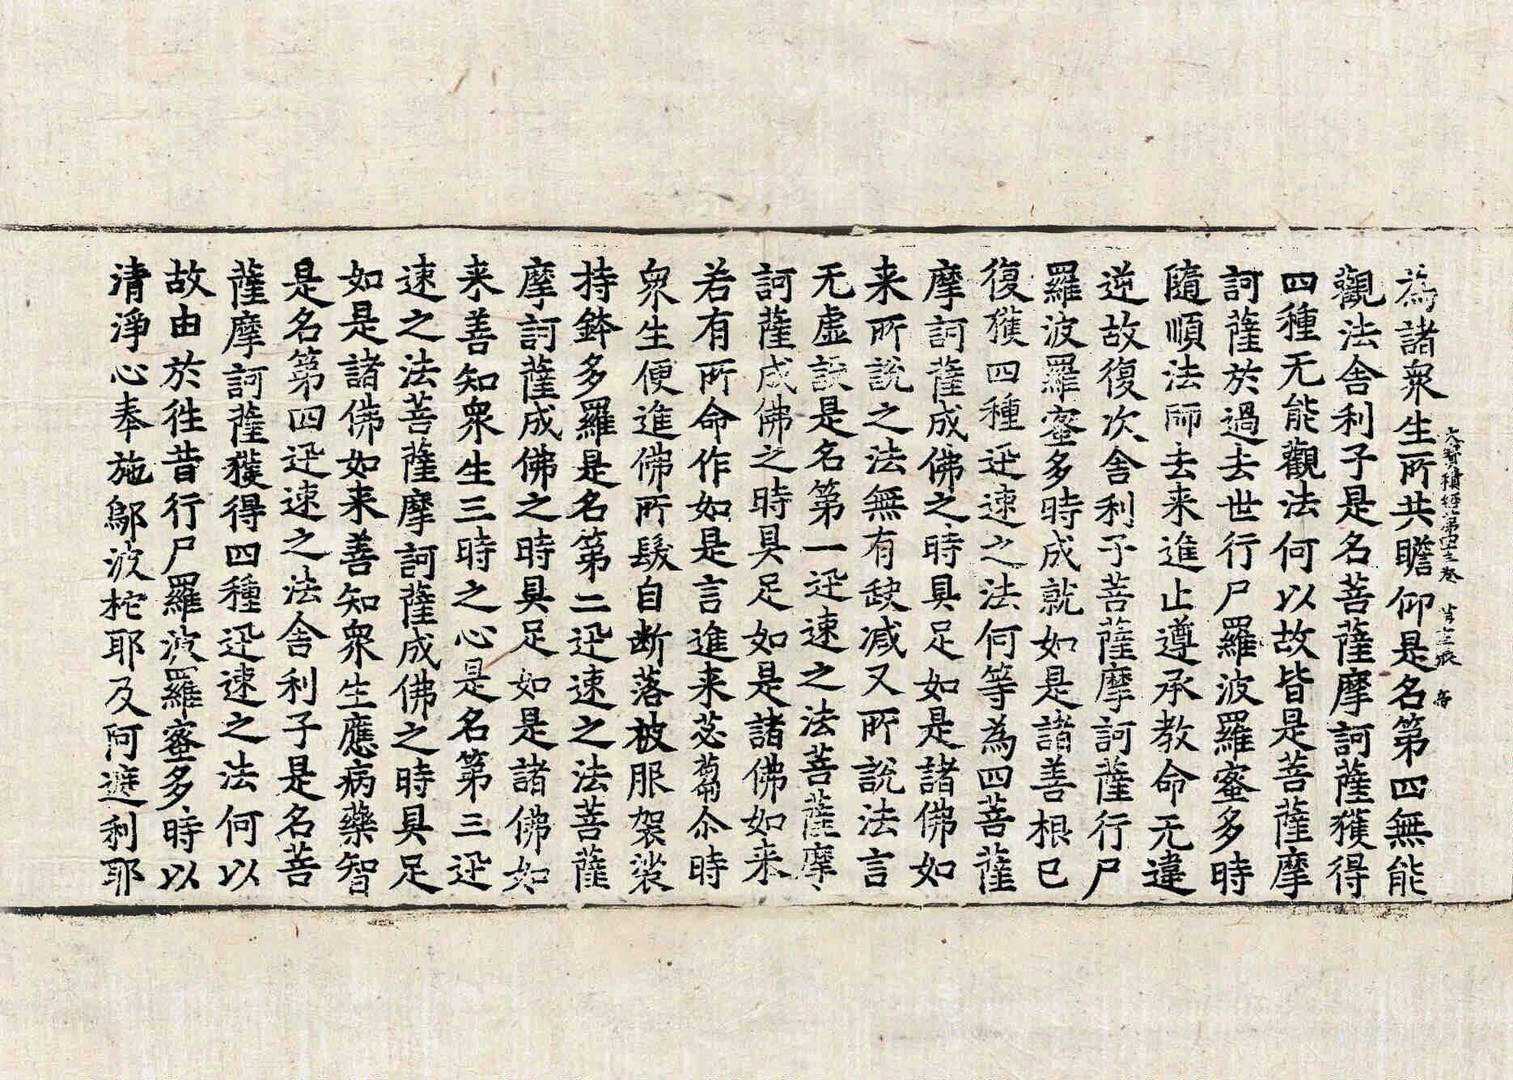 大寶積經第四十三卷 第十三張 帝
為諸衆生所共瞻仰是名第四無能
觀法舍利子是名菩薩摩訶薩獲得
四種无能觀法何以故皆是菩薩摩
訶薩於過去世行尸羅波羅蜜多時
隨順法師去来進止遵承教命无違
逆故復次舍利子菩薩摩訶薩行尸
羅波羅蜜多時成就如是諸善根已
復獲四種迅速之法何等為四菩薩
摩訶薩成佛之時具足如是諸佛如
来所說之法無有缺减又所說法言
无虛設是名第一迅速之法菩薩摩
訶薩成佛之時具足如是諸佛如来
若有所命作如是言進来苾蒭尒時
衆生便進佛所髮自断落被服袈裟
持鉢多羅是名第二迅速之法菩薩
摩訶薩成佛之時具足如是諸佛如
来善知衆生三時之心是名第三迅
速之法菩薩摩訶薩成佛之時具足
如是諸佛如来善知衆生應病藥智
是名第四迅速之法舍利子是名菩
薩摩訶薩獲得四種迅速之法何以
故由於往昔行尸羅波羅蜜多時以
清淨心奉施鄔波柁耶及阿遮利耶